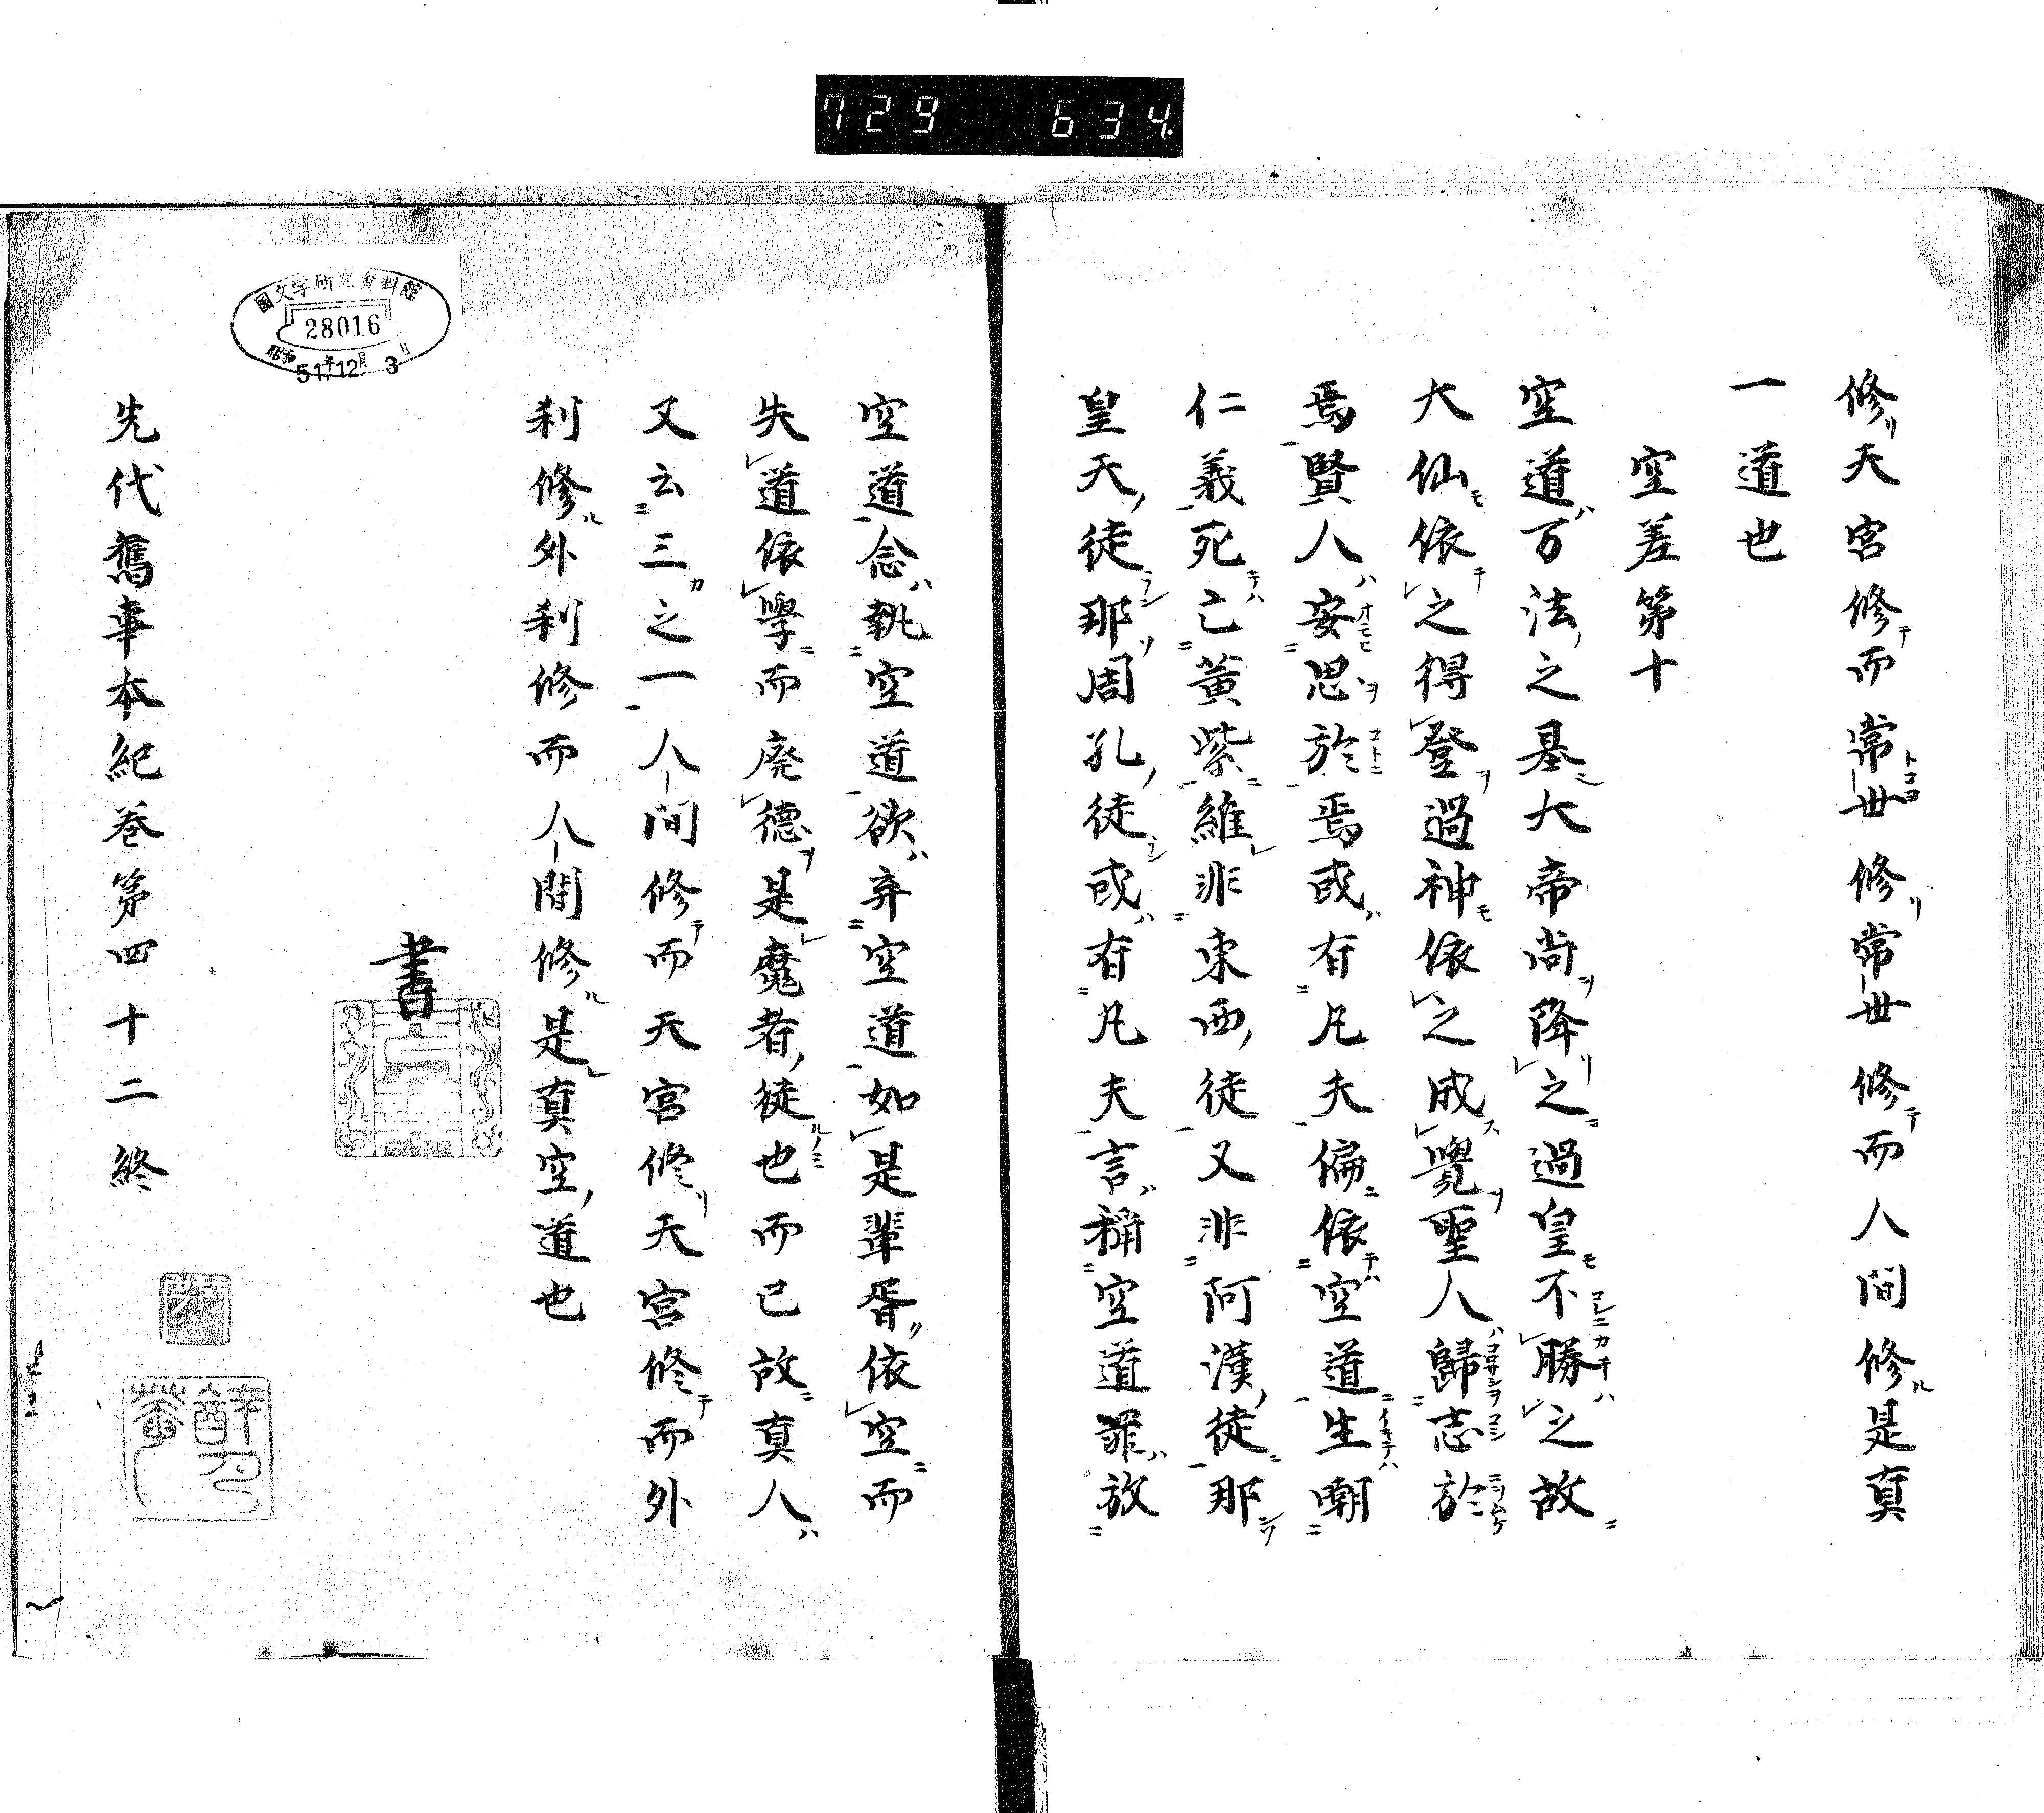 729 634
修天宮修而常世修常世修而人間修是真
一道也
空差第十
空道万法之基大帝尚降之過皇不勝之故
大仙依之得登過神依之成覺聖人歸志於
焉賢人安思於焉或有凡夫偏依空道生嘲
仁義死亡黃紫維非東西徒又非阿漢徒那
皇天徒那周孔徒或有凡夫言稱空道罪放
空道念執空道欲弃空道如是輩胥依空而
失道依學而廃德是魔者徒也而已故真人
又云三之一人間修而天宮修天宮修而外
刹修外刹修而人間修是真空道也
書
先代舊事本紀巻第四十二終
國文学研究資料館
28016
昭和51年12月3日